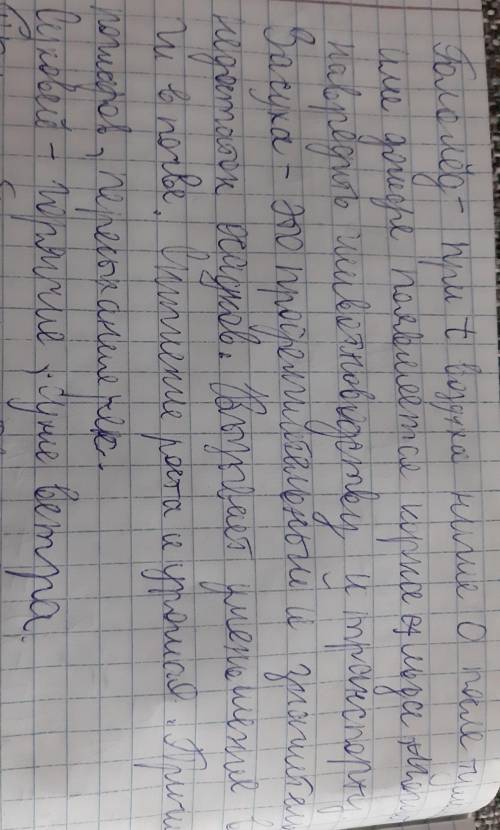 Гололёд - при t воздуха ниже 0 после
или дожде появляется корка льда
навредить животноводству и транспорт
Засуха - это продолжительный и значительн
недостаток осадков. Вызывает уменьшение
ги в почве. Снижение роста и урожая. Причи
пожаров, пересыхание рек.
Суховей - горячие, сухие ветра.